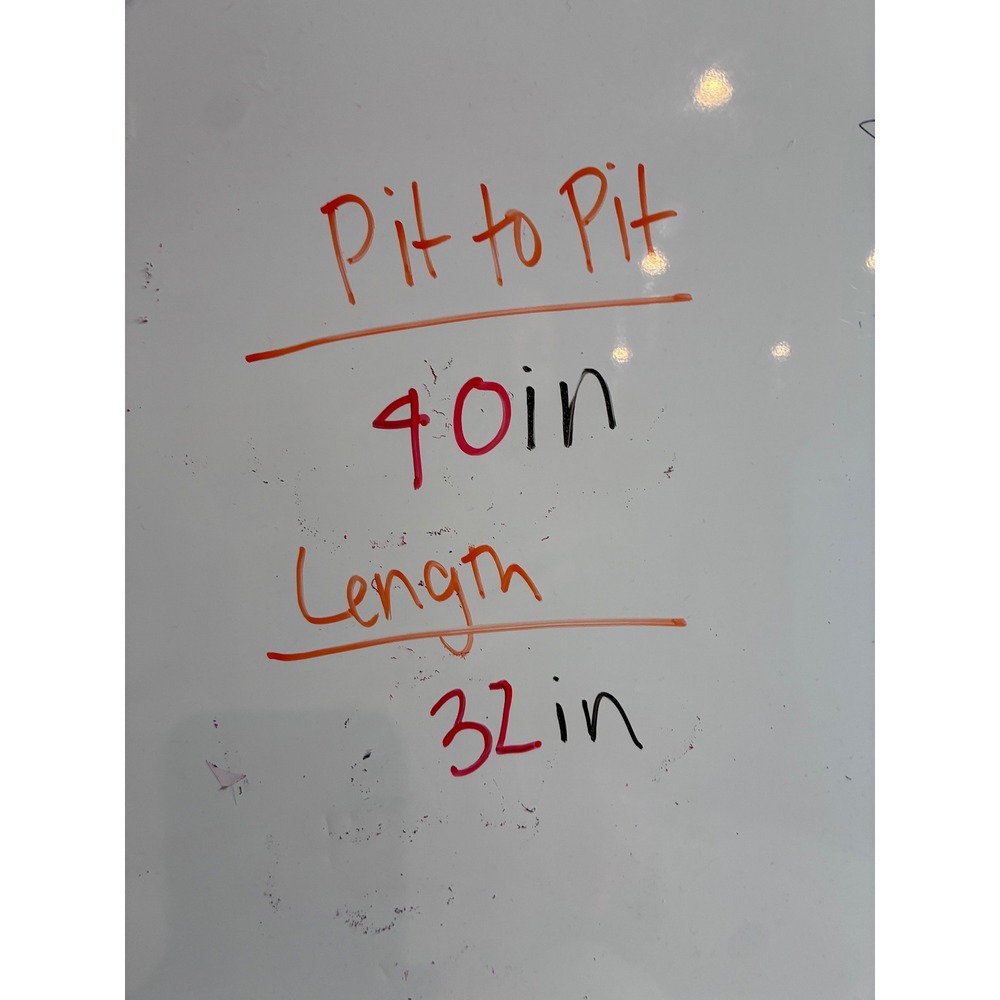 Pit to Pit
40in
Length
32in